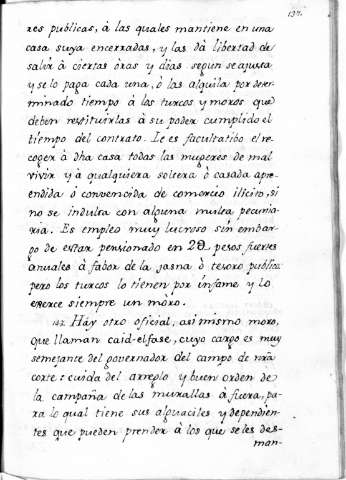 137.
res publicas, à las quales mantiene en una
casa suya encerradas, y las dà libertad de
salir à ciertas òras y dias segun se ajusta
y se lo paga cada una, ò las alquila por deter-
minado tiempo à los turcos y moros que
deben restituirlas à su poder cumplido el
tiempo del contrato. Le es facultatibo el re-
coger à dha casa todas las mugeres de mal
vivir y à qualquiera soltera ò casada apre-
endida ò convencida de comercio ilicito, si
no se indulta con alguna multa pecunia-
ria. Es empleo muy lucroso sin embar-
go de estar pensionado en pesos fuertes
anuales à fabor de la gasna ò tesoro publico
pero los turcos lo tienen por infame y lo
exerce siempre un mòro.
Hày otro oficial, asi mismo moro,
que llaman caid-el-fase, cuyo cargo es muy
semejante del governador del campo de nra
corte: cuida del arreglo y buen orden de
la campaña de las murallas à fuera, pa-
ra lo qual tiene sus alguaciles y dependien-
tes que pueden prender à los que se les des-
man-